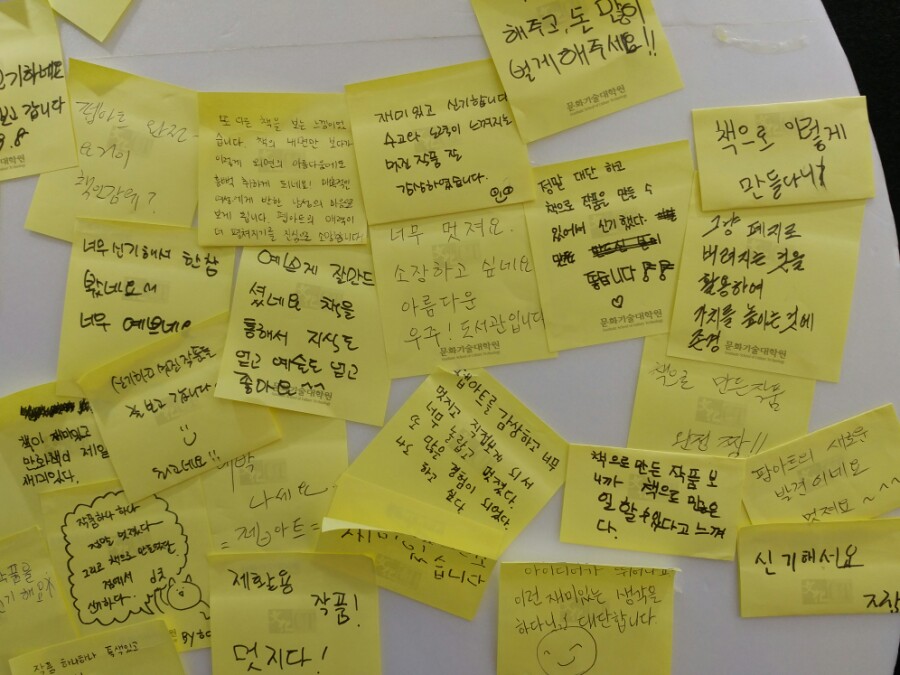 해주고, 돈 많이
벌게해주세요!!
문화기술대학원
신기하네요
보고 갑니다
팝아트 완전
또 다른 책을 보는 느낌이었
습니다. 책의 내면만 보다가
이렇게 외면의 아름다움에도
흠뻑 취하게 되네요!
보게 됩니다. 팝아트의 매력이
더 펼쳐지기를 진심으로 소망합니다
재미있고 신기합니다
수고와 노력이 느껴지는
멋진 작품 잘
감상하였습니다.
정말 대단 하고
책으로 작품을 만들 수
있어서 신기했다.
좋습니다
문화기술대학원
책으로 이렇게
만들다니!
너무 신기해서 한참
봤네요
너무 예쁘네요
예쁘게 잘만드
셨네요 책을
통해서 지식도
얻고 예술도 얻고
좋아요 ^^
너무 멋져요.
소장하고 싶네요
아름다운
우주! 도서관입니다
문화기술대학원
그냥 폐지로
버려지는 것을
활용하여
가치를 높이는것에
존경
문화기술대학원
신기하고 멋진 작품들
잘 보고 갑니다
책이 재미있고
만화책이 제일
재미있다.
대박
나세요
=팝아트=
팝아트를 감상하고 너무
멋지고 직접보게 되서
너무 놀랍고 멋졌다.
또 많은 경험이 되었다.
나도 하고 싶다
책으로 만든 작품
완전 짱!!
책으로 만든 작품 보
니까 책으로 많은
일 할 수 있다고 느껴
다.
팝아트의 새로운
발견이네요
멋져요 ~^^
작품하나 하나
정말 멋져요
그리고 책으로 만들었다는
점에서
신기해요
재활용
작품!
멋지다!
아이디어가 뛰어나요
이런 재미있는 생각을
하다니, 대단합니다
신기해서요
작품 하나하나 특색있고